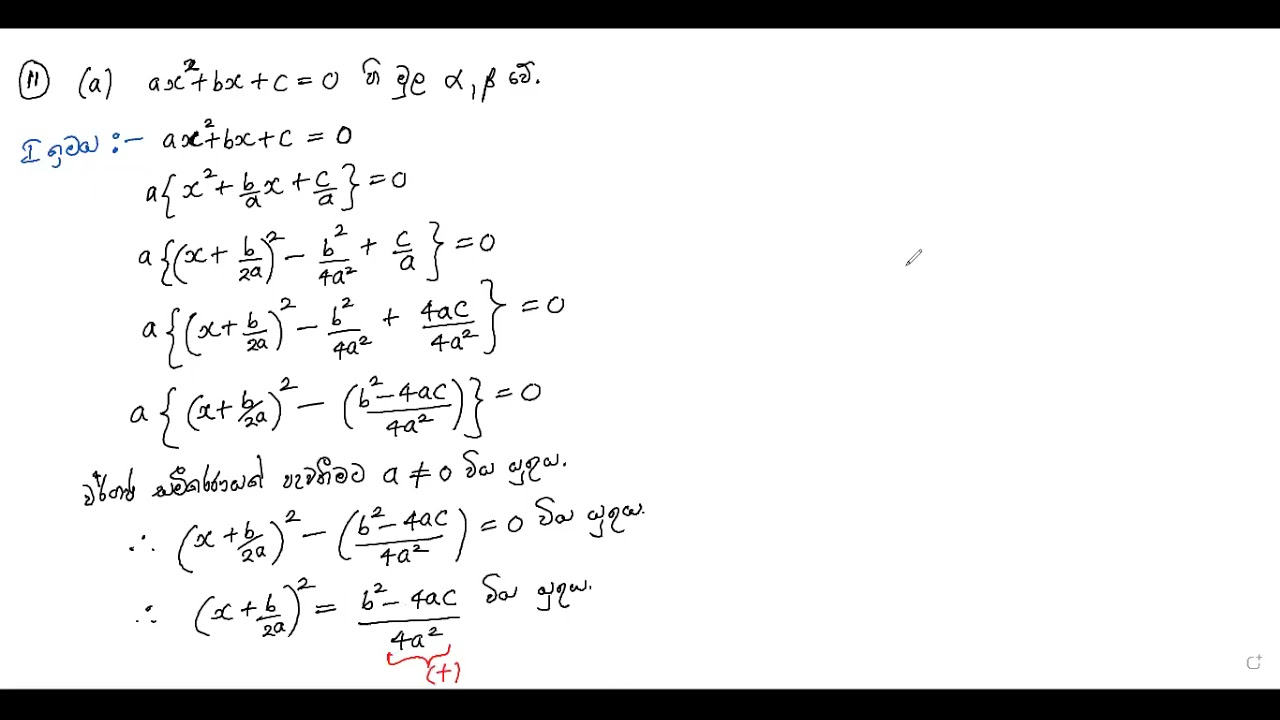 ⑪ (a) ax²+bx+c=0 හි මූල α, β වේ.
I ක්‍රමය :- ax²+bx+c = 0
a{x²+b/a x+c/a}=0
a{(x+b/2a)²-b²/4a²+c/a}=0
a{(x+b/2a)²-b²/4a²+4ac/4a²}=0
a{(x+b/2a)²-(b²-4ac/4a²)}=0
වර්ගජ සමීකරණයක් පැවතීමට a≠0 විය යුතුය.
∴ (x+b/2a)²-(b²-4ac/4a²)=0 විය යුතුය.
∴ (x+b/2a)²=b²-4ac/4a² විය යුතුය.
(+)